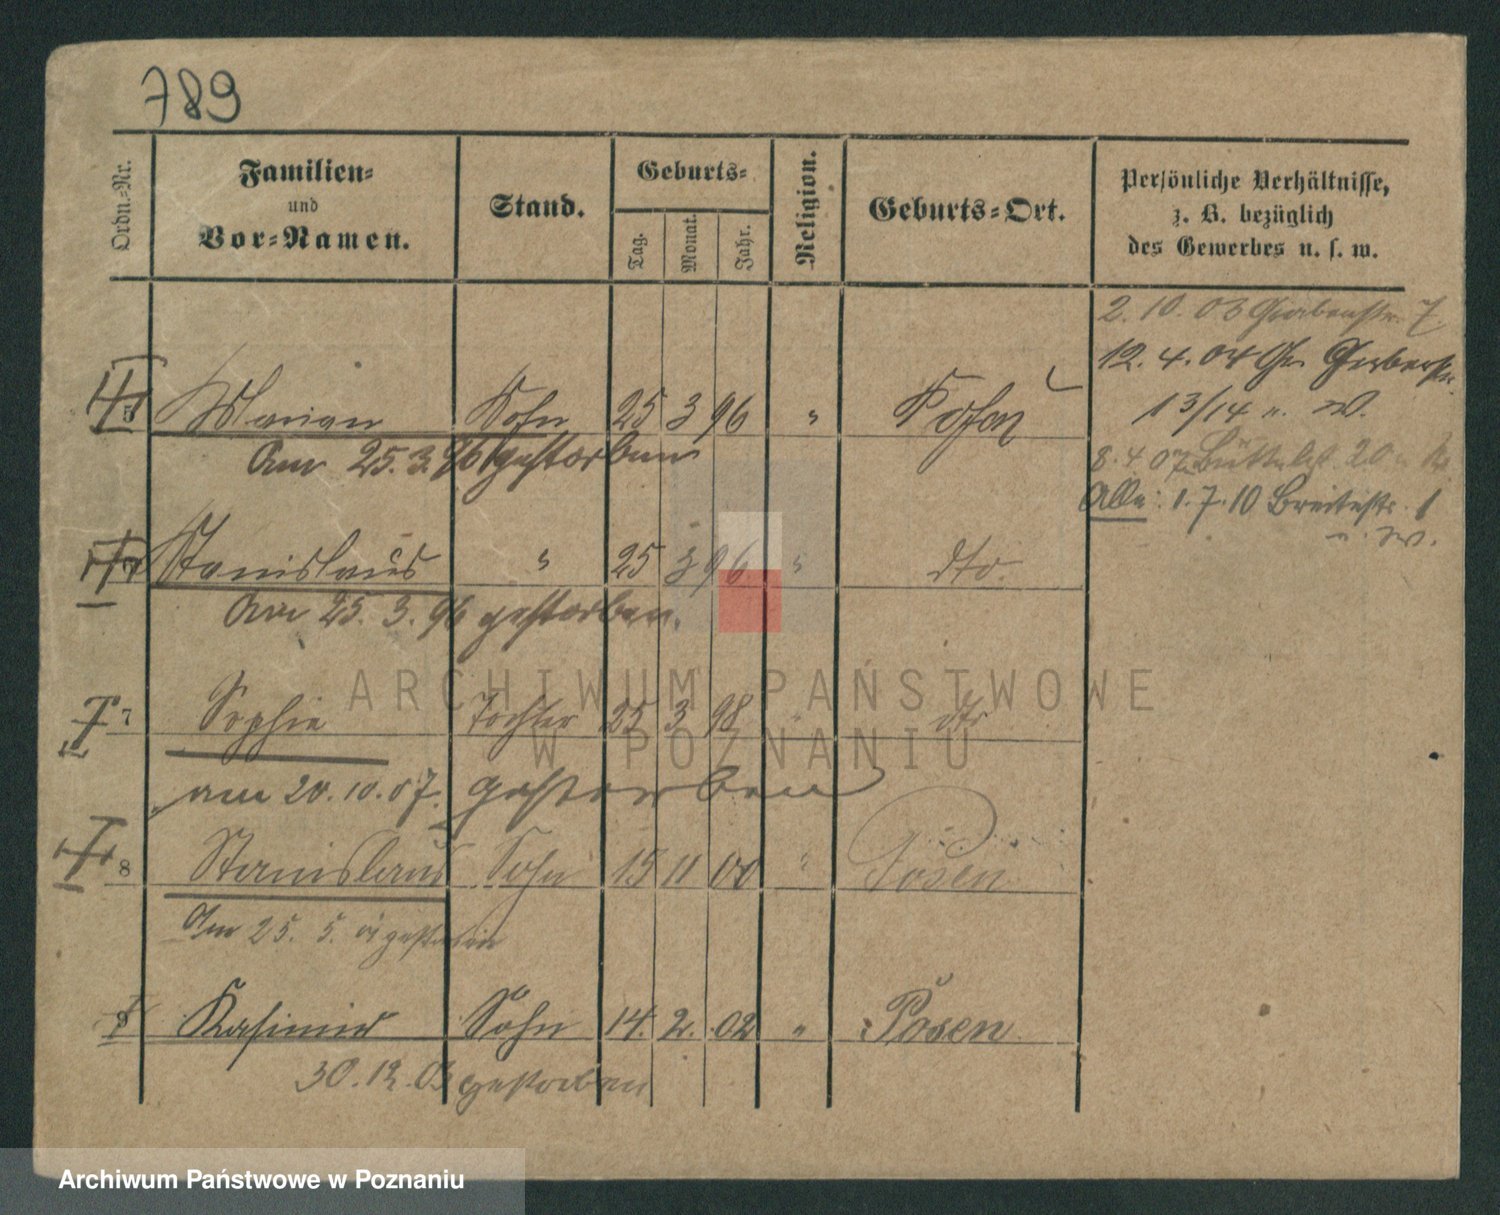 789
Ordn.-Nr.
Familien-
und
Vor-Namen.
Stand.
Geburts-
Tag.
Monat.
Jahr.
Religion.
Geburts-Ort.
Persönliche Verhältnisse,
z. B. bezüglich
des Gewerbes u. s. w.
2.10.03 Grabenstr. 7
12.4.04 Gr. Gerberstr.
13/14 u. W.
8.4.07 Büttelst. 20
Alle: 1.7.10 Breitestr. 1
u. W.
5 Marian Sohn 25 3 96 " Posen
Am 25.3.96 gestorben
Stanislaus " 25 3 96 " dto.
Am 25.3.96 gestorben.
7 Sophie Tochter 25 3 98 " dto
am 20.10.07. gestorben
8 Stanislaus Sohn 15 11 00 " Posen
Am 25.5. 01 gestorben
9 Kasimir Sohn 14. 2. 02 " Posen
30.12.03 gestorben
ARCHIWUM PAŃSTWOWE
W POZNANIU
Archiwum Państwowe w Poznaniu